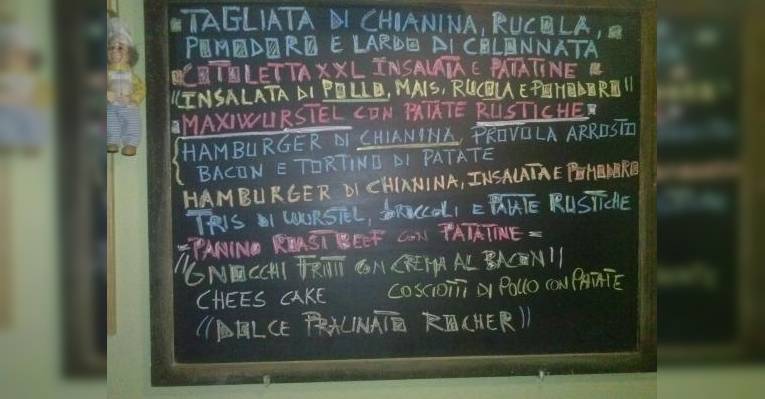 TAGLIATA DI CHIANINA, RUCOLA,
POMODORO E LARDO DI COLONNATA
COTOLETTA XXL INSALATA E PATATINE
"INSALATA DI POLLO, MAIS, RUCOLA E POMODORO"
MAXIWURSTEL CON PATATE RUSTICHE
HAMBURGER DI CHIANINA, PROVOLA ARROSTO
BACON E TORTINO DI PATATE
HAMBURGER DI CHIANINA, INSALATA E POMODORO
TRIS DI WURSTEL, BROCCOLI E PATATE RUSTICHE
=PANINO ROAST BEEF CON PATATINE=
"GNOCCHI FRITTI CON CREMA AL BACON"
CHEES CAKE COSCIOTTI DI POLLO CON PATATE
"DOLCE PRALINATO ROCHER"